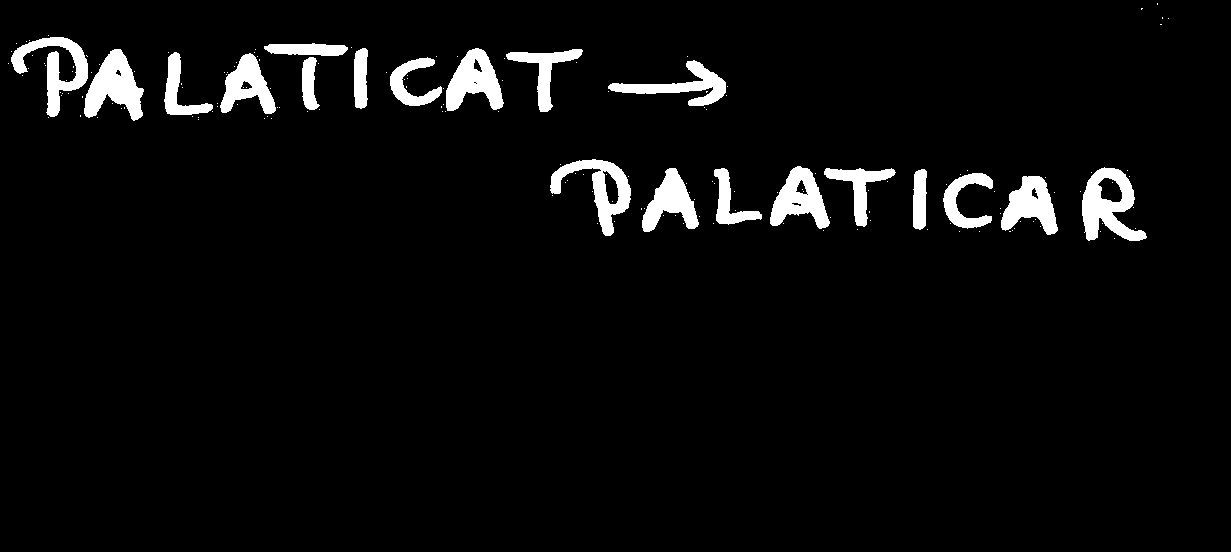 PALATICAT →
PALATICAR